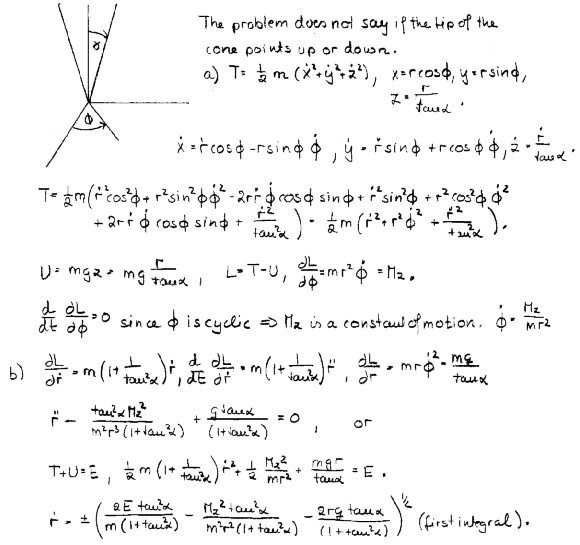 The problem does not say if the tip of the
cone points up or down.
α
φ
a) T = ½ m (ẋ² + ẏ² + ż²), x = r cosφ, y = r sinφ,
z = r/tanα .
ẋ = ṙ cosφ - r sinφ φ̇ , ẏ = ṙ sinφ + r cosφ φ̇, ż = ṙ/tanα .
T = ½ m (ṙ² cos²φ + r² sin²φ φ̇² - 2rṙ φ̇ cosφ sinφ + ṙ² sin²φ + r² cos²φ φ̇²
+ 2rṙ φ̇ cosφ sinφ + ṙ²/tan²α) = ½ m (ṙ² + r² φ̇² + ṙ²/tan²α).
U = mgz = mg r/tanα , L = T-U, ∂L/∂φ̇ = mr² φ̇ = Mz .
d/dt ∂L/∂φ̇ = 0 since φ is cyclic ⇒ Mz is a constant of motion. φ̇ = Mz/mr²
b) ∂L/∂ṙ = m(1 + 1/tan²α) ṙ, d/dt ∂L/∂ṙ = m(1 + 1/tan²α) r̈ , ∂L/∂r = mr φ̇² - mg/tanα
r̈ - tan²α Mz²/m²r³(1+tan²α) + g tanα/(1+tan²α) = 0 , or
T+U = E , ½ m (1 + 1/tan²α) ṙ² + ½ Mz²/mr² + mgr/tanα = E .
ṙ = ± (2E tan²α/m(1+tan²α) - Mz² tan²α/m²r²(1+tan²α) - 2rg tanα/(1+tan²α))^½ (first integral).